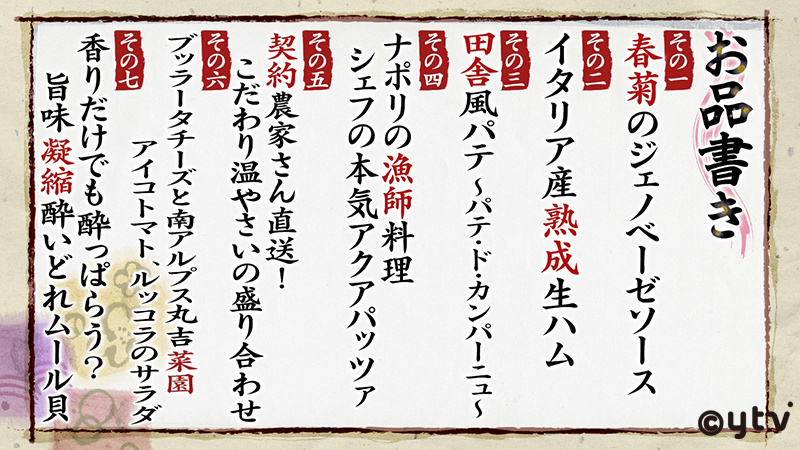 お品書き
その一
春菊のジェノベーゼソース
その二
イタリア産熟成生ハム
その三
田舎風パテ～パテ・ド・カンパーニュ～
その四
ナポリの漁師料理
シェフの本気アクアパッツァ
その五
契約農家さん直送！
こだわり温やさいの盛り合わせ
その六
ブッラータチーズと南アルプス丸吉菜園
アイコトマト、ルッコラのサラダ
その七
香りだけでも酔っぱらう？
旨味凝縮酔いどれムール貝
©ytv